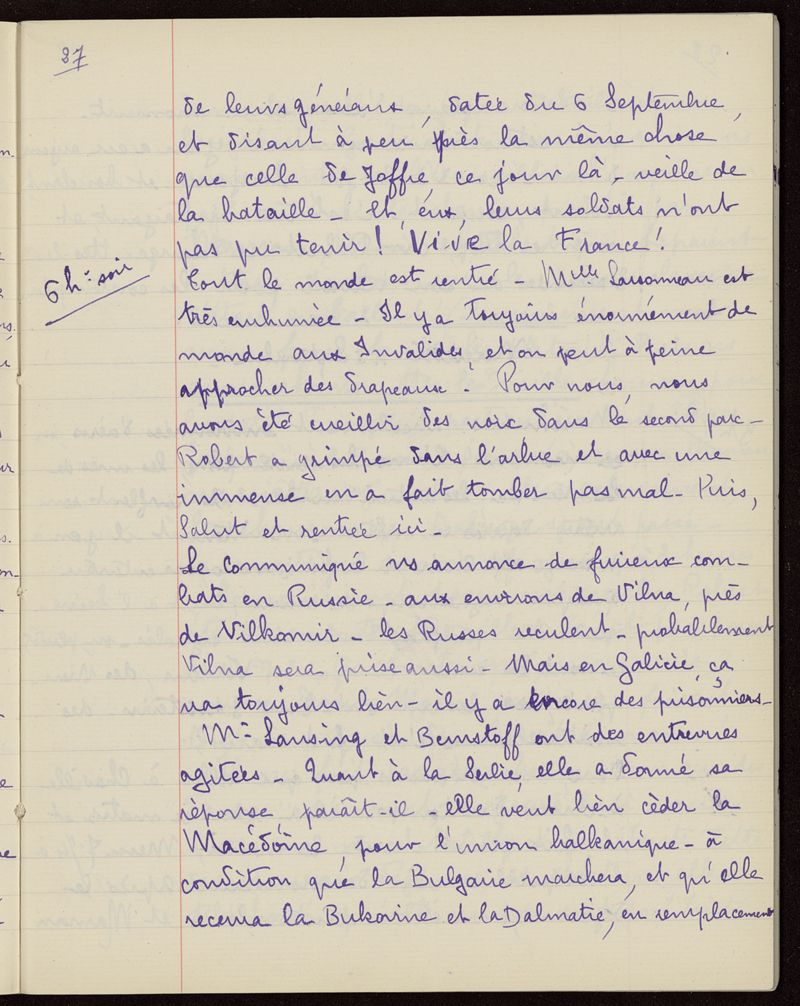 27
de leurs généraux, datée du 6 Septembre,
et disant à peu près la même chose
que celle de Joffre, ce jour là, veille de
la bataille - Et, eux, leurs soldats n'ont
pas pu tenir! Vive la France!
6h. soir
Tout le monde est rentré - Melle Sansonneau est
très enrhumée - Il y a toujours énormément de
monde aux Invalides et on peut à peine
approcher des drapeaux! Pour nous, nous
avons été cueillir des noix dans le second parc -
Robert a grimpé dans l'arbre et avec une
immense en a fait tomber pas mal - Puis,
Salut et rentrée ici -
Le Communiqué ns annonce de furieux com-
bats en Russie - aux environs de Vilna, près
de Vilkomir - les Russes reculent - probablement
Vilna sera prise aussi - Mais en Galicie, ça
va toujours bien - il y a encore des prisonniers -
Mr Lansing et Bernstoff ont des entrevues
agitées - Quant à la Serbie, elle a donné sa
réponse paraît-il - elle veut bien céder la
Macédoine, pour l'union balkanique - à
condition que la Bulgarie marchera, et qu'elle
recevra la Bukovine et la Dalmatie, en remplacement